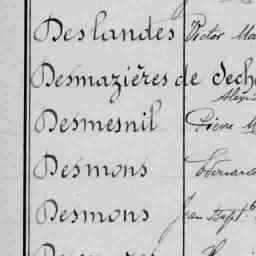 Deslandes Victor
Desmazières de Sech
Alexis
Desmesnil Pierre
Desmons Edouard
Desmons Jean Bapt.